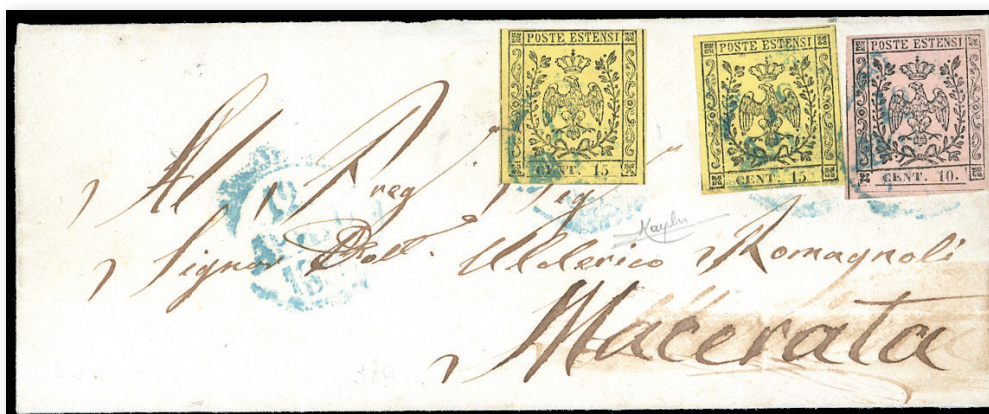 POSTE ESTENSI
CENT. 15
POSTE ESTENSI
CENT. 15
POSTE ESTENSI
CENT. 10.
Al Preg
Signor Dott. Ulderico Romagnoli
Macerata